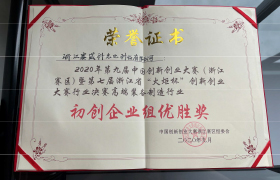 荣誉证书
2020年第九届中国创新创业大赛（浙江
赛区）暨第七届浙江省“火炬杯”创新创业
大赛行业决赛高端装备制造行业
初创企业组优胜奖
中国创新创业大赛浙江赛区组委会
二〇二〇年九月